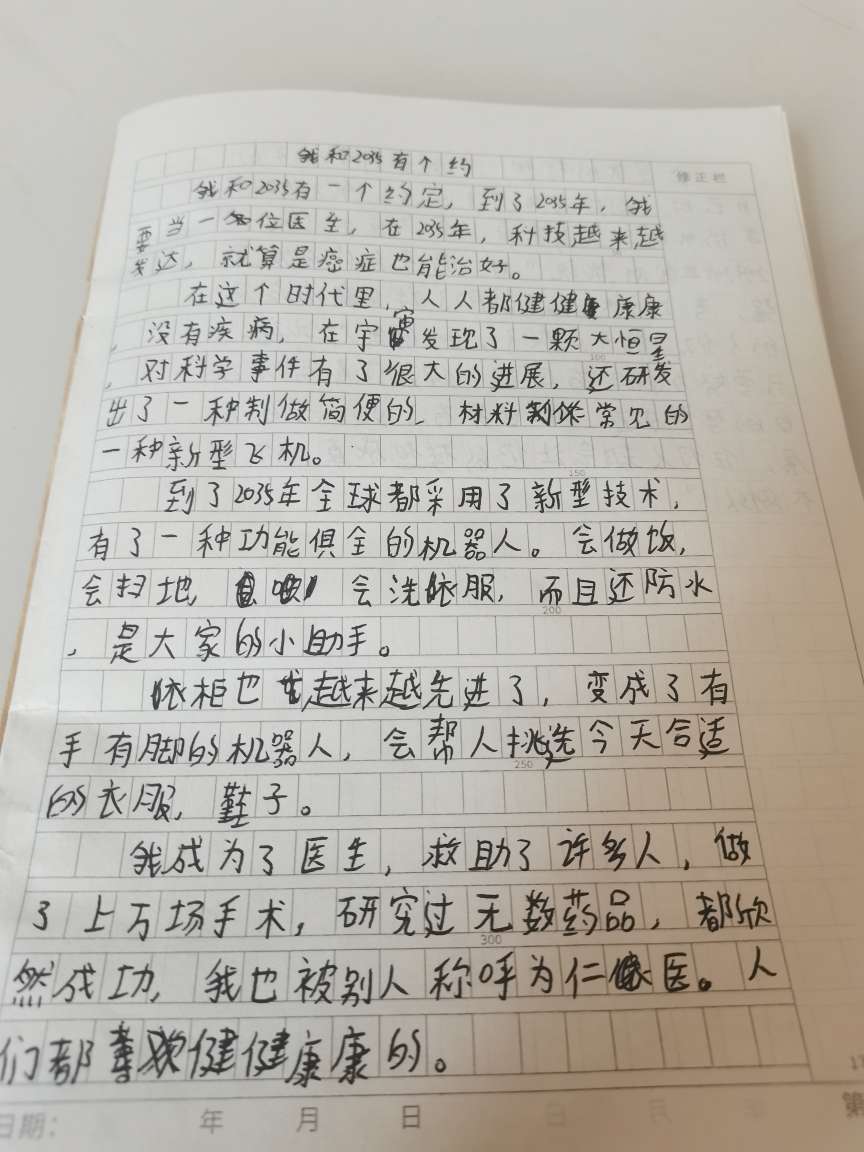 我和2035有个约
修正栏
我和2035有一个约定，到了2035年，我
要当一名位医生，在2035年，科技越来越
发达，就算是癌症也能治好。
在这个时代里，人人都健健康康
，没有疾病，在宇宙发现了一颗大恒星
，对科学事件有了很大的进展，还研发
100
出了一种制做简便的，材料制作常见的
一种新型飞机。
150
到了2035年全球都采用了新型技术，
有了一种功能俱全的机器人。会做饭，
会扫地，会洗衣服，而且还防水
200
，是大家的小助手。
衣柜也越来越先进了，变成了有
手有脚的机器人，会帮人挑选今天合适
250
的衣服，鞋子。
我成为了医生，救助了许多人，做
了上万场手术，研究过无数药品，都欣
300
然成功，我也被别人称呼为仁医。人
们都健健康康的。
日期： 年 月 日 第